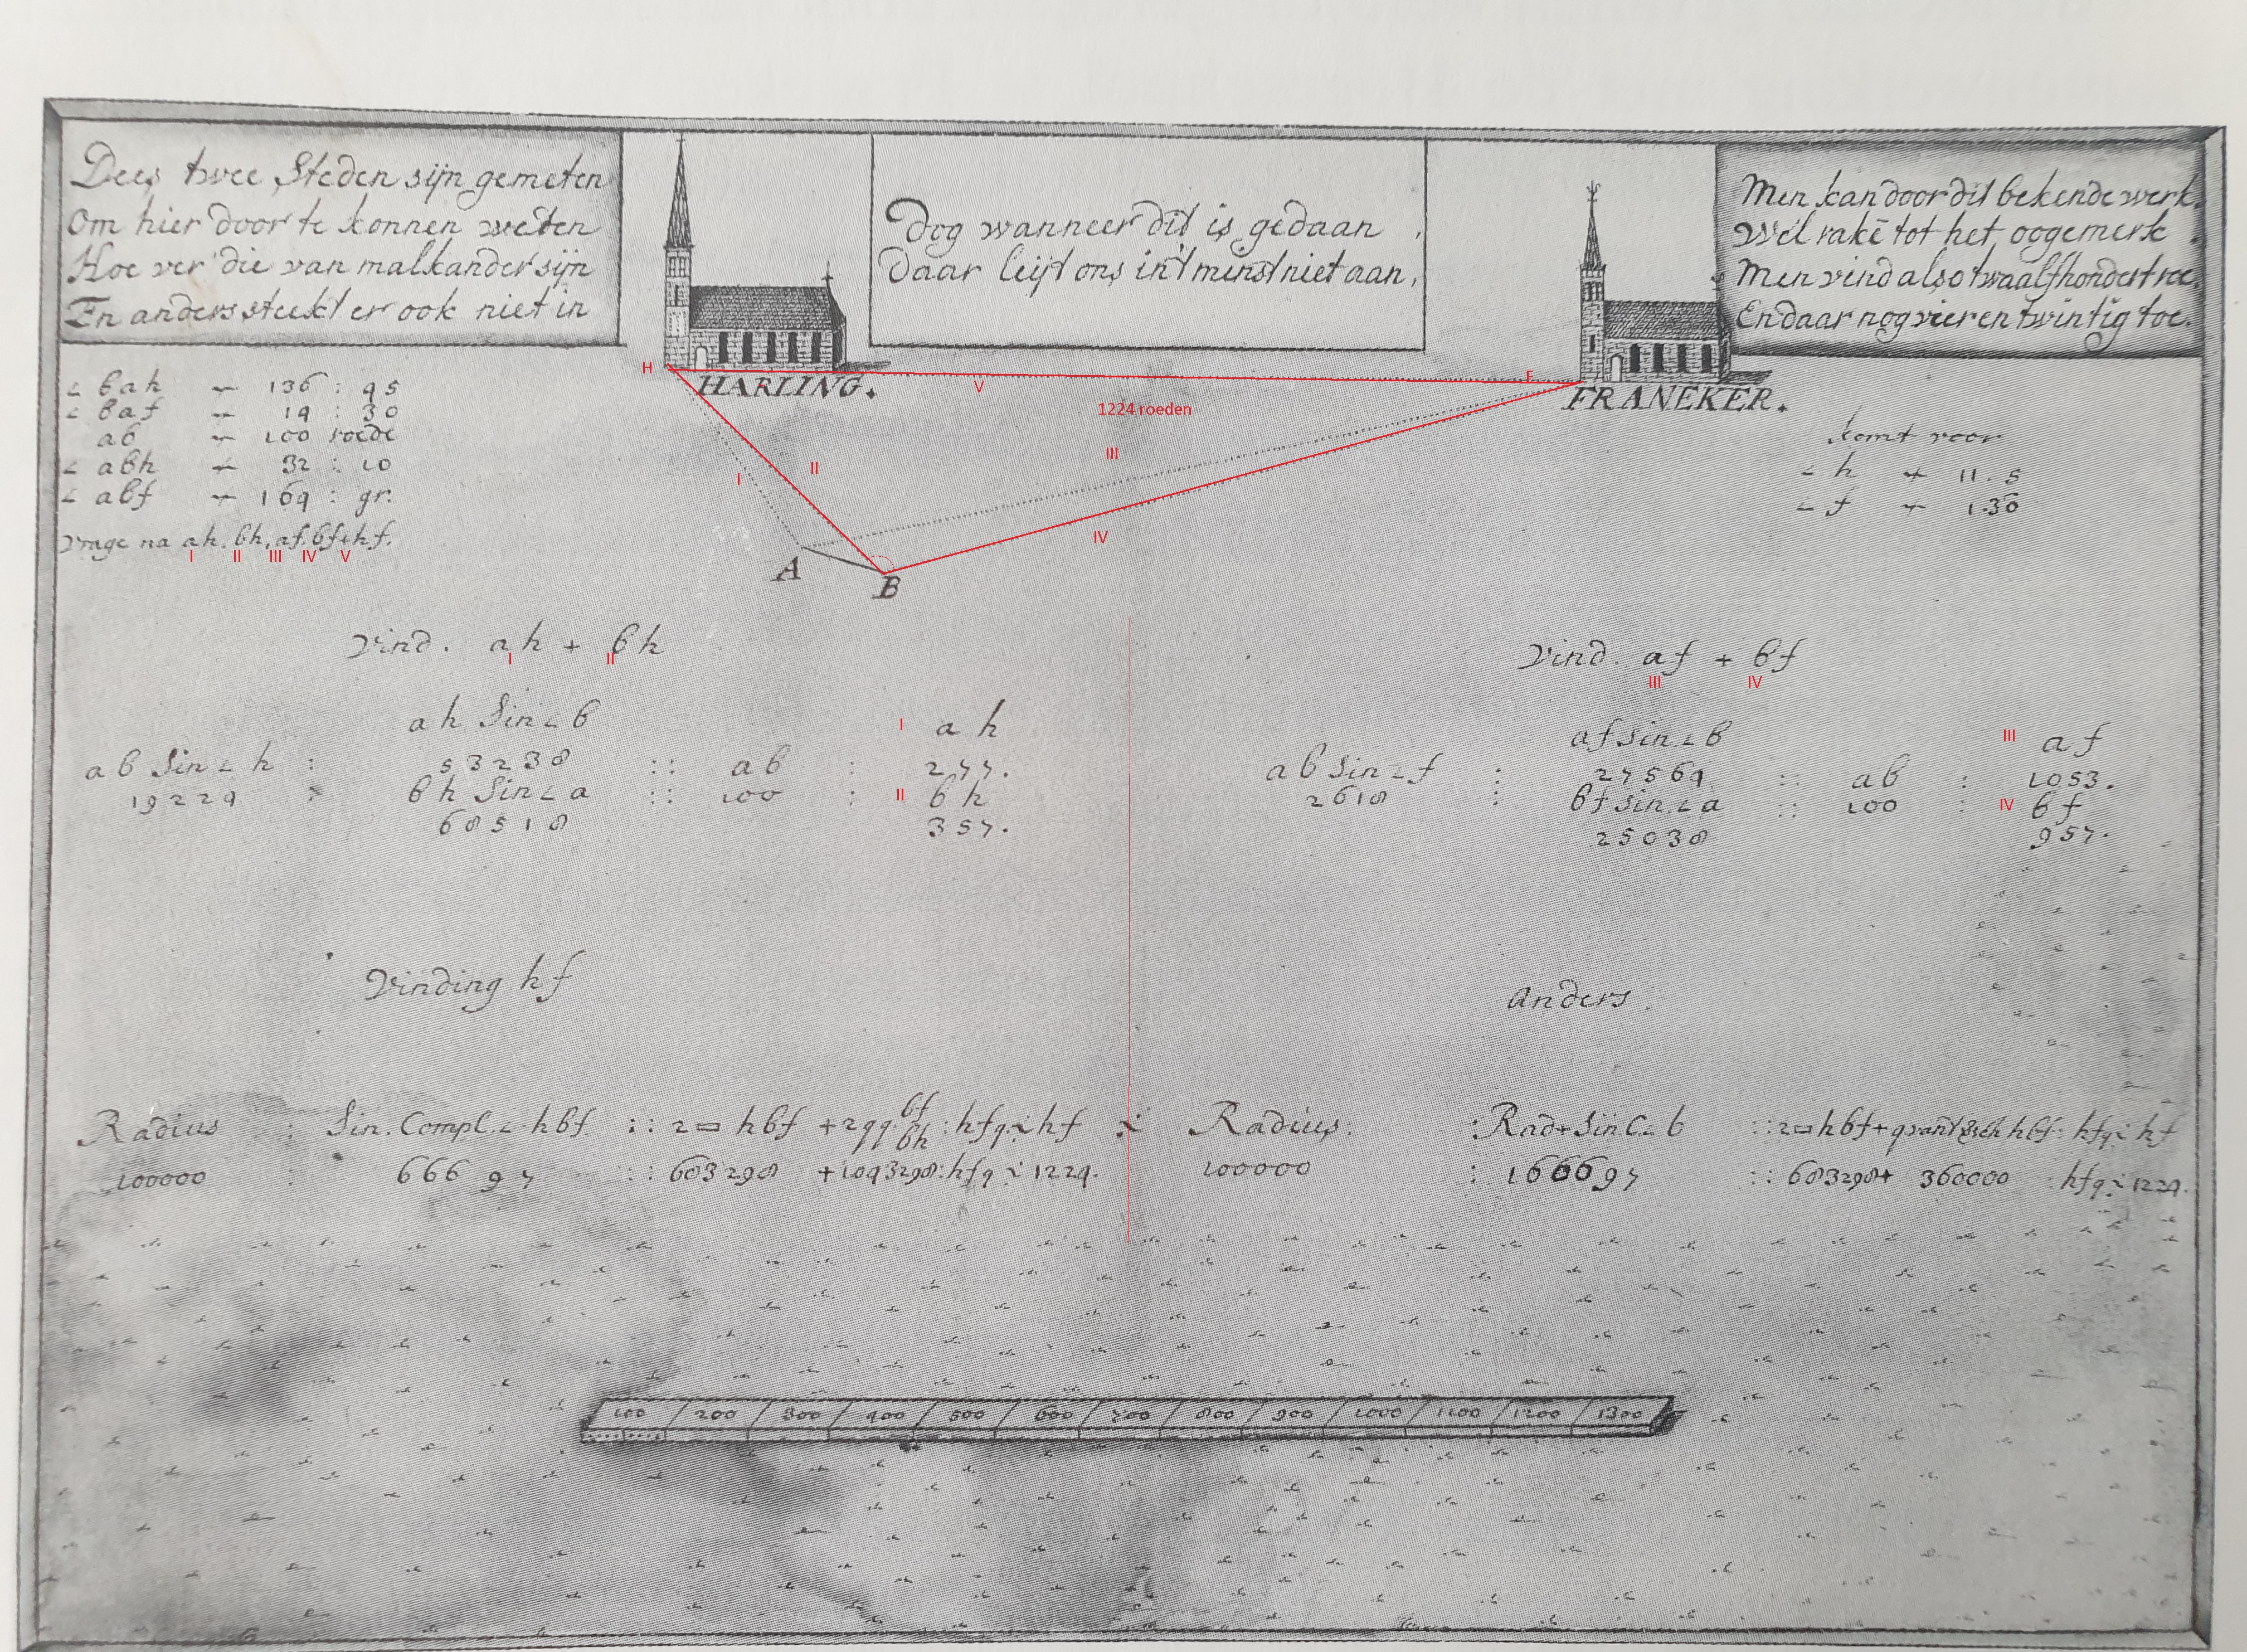 Dees twee Steden sijn gemeten
Om hier door te konnen weten
Hoe ver die van malkander sijn
En anders steekt er ook niet in
Dog wanneer dit is gedaan
Daar leijt ons in't minst niet aan,
Men kan door dit bekende werk.
Wel rakē tot het oogemerk
Men vind also twaalfhondert roe.
En daar nog vier en twintig toe.
H
HARLING.
V
F
FRANEKER.
1224 roeden
I
II
III
IV
A
B
∠ bah 136 : 45
∠ baf 14 : 30
ab 100 roede
∠ abh 32 : 10
∠ abf 164 : gr.
vrage na ah, bh, af, bf + hf.
I II III IV V
komt voor
∠ h 11 . 5
∠ f 1.30
Vind. ah + bh
I II
ah Sin ∠ b
I ah
ab Sin ∠ h : 53238 :: ab : 277.
19224 : bh Sin ∠ a :: 100 : II bh
68518 357.
Vind. af + bf
III IV
af Sin ∠ b
III af
ab Sin ∠ f : 27564 :: ab : 1053.
2618 : bf Sin ∠ a :: 100 : IV bf
25038 957.
Vinding hf
Radius : Sin. Compl. ∠ hbf :: 2▭ hbf + 2qq bf bh : hfq hf
100000 : 66697 :: 683298 + 1043298 : hfq 1224.
Anders.
Radius : Rad + Sin C ∠ b :: 2▭ hbf + hbf : hfq hf
100000 : 166697 :: 683298 + 360000 : hfq 1224.
100 200 300 400 500 600 700 800 900 1000 1100 1200 1300